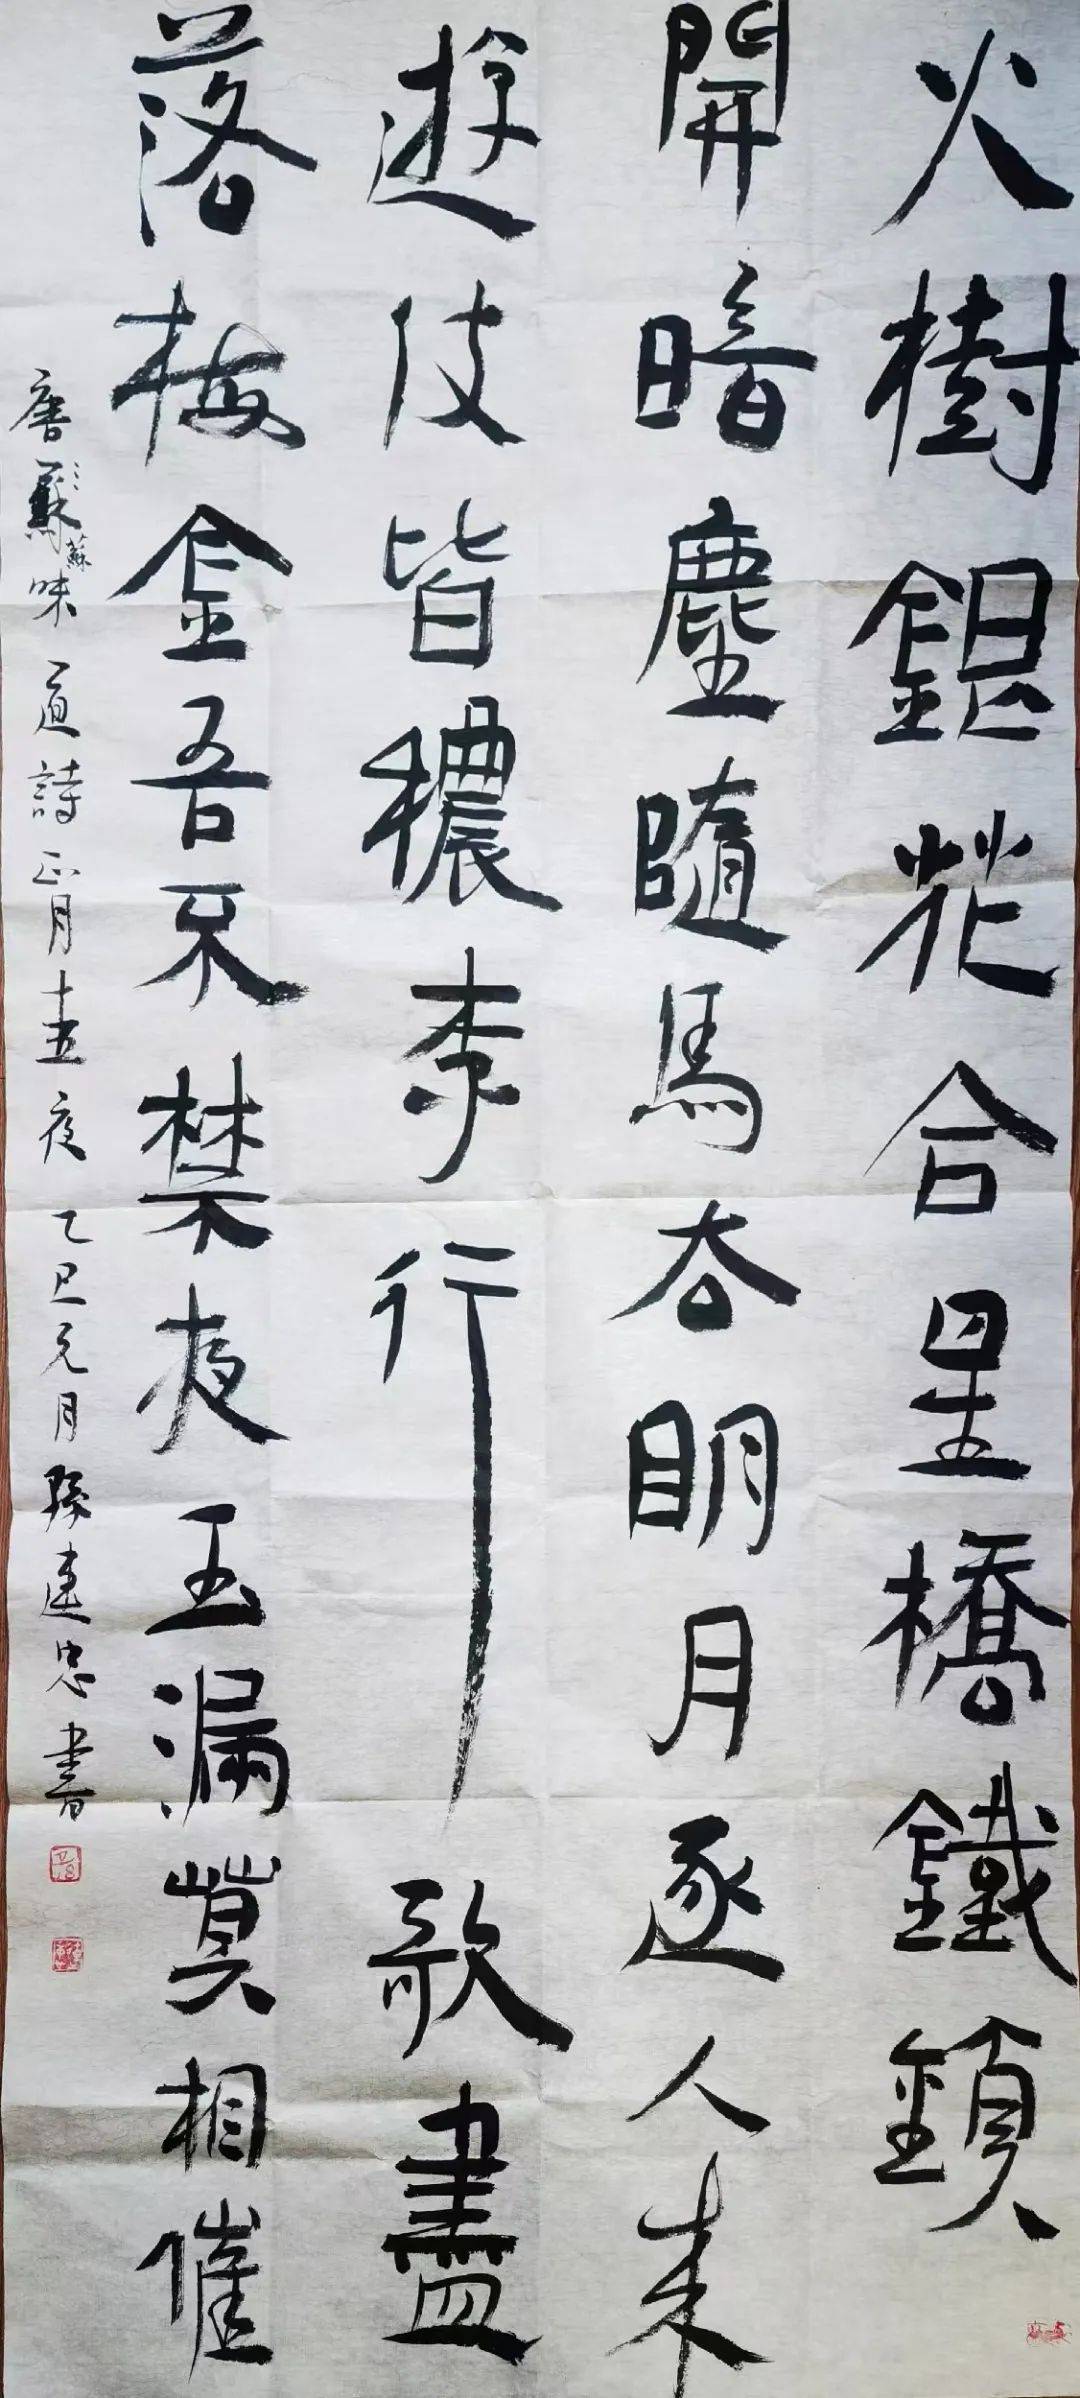 火樹銀花合星橋鐵鎖
開暗塵隨馬去明月逐人来
遊伎皆穠李行歌盡
落梅金吾不禁夜玉漏莫相催
唐蘇味道詩正月十五夜 乙巳元月孫建忠書